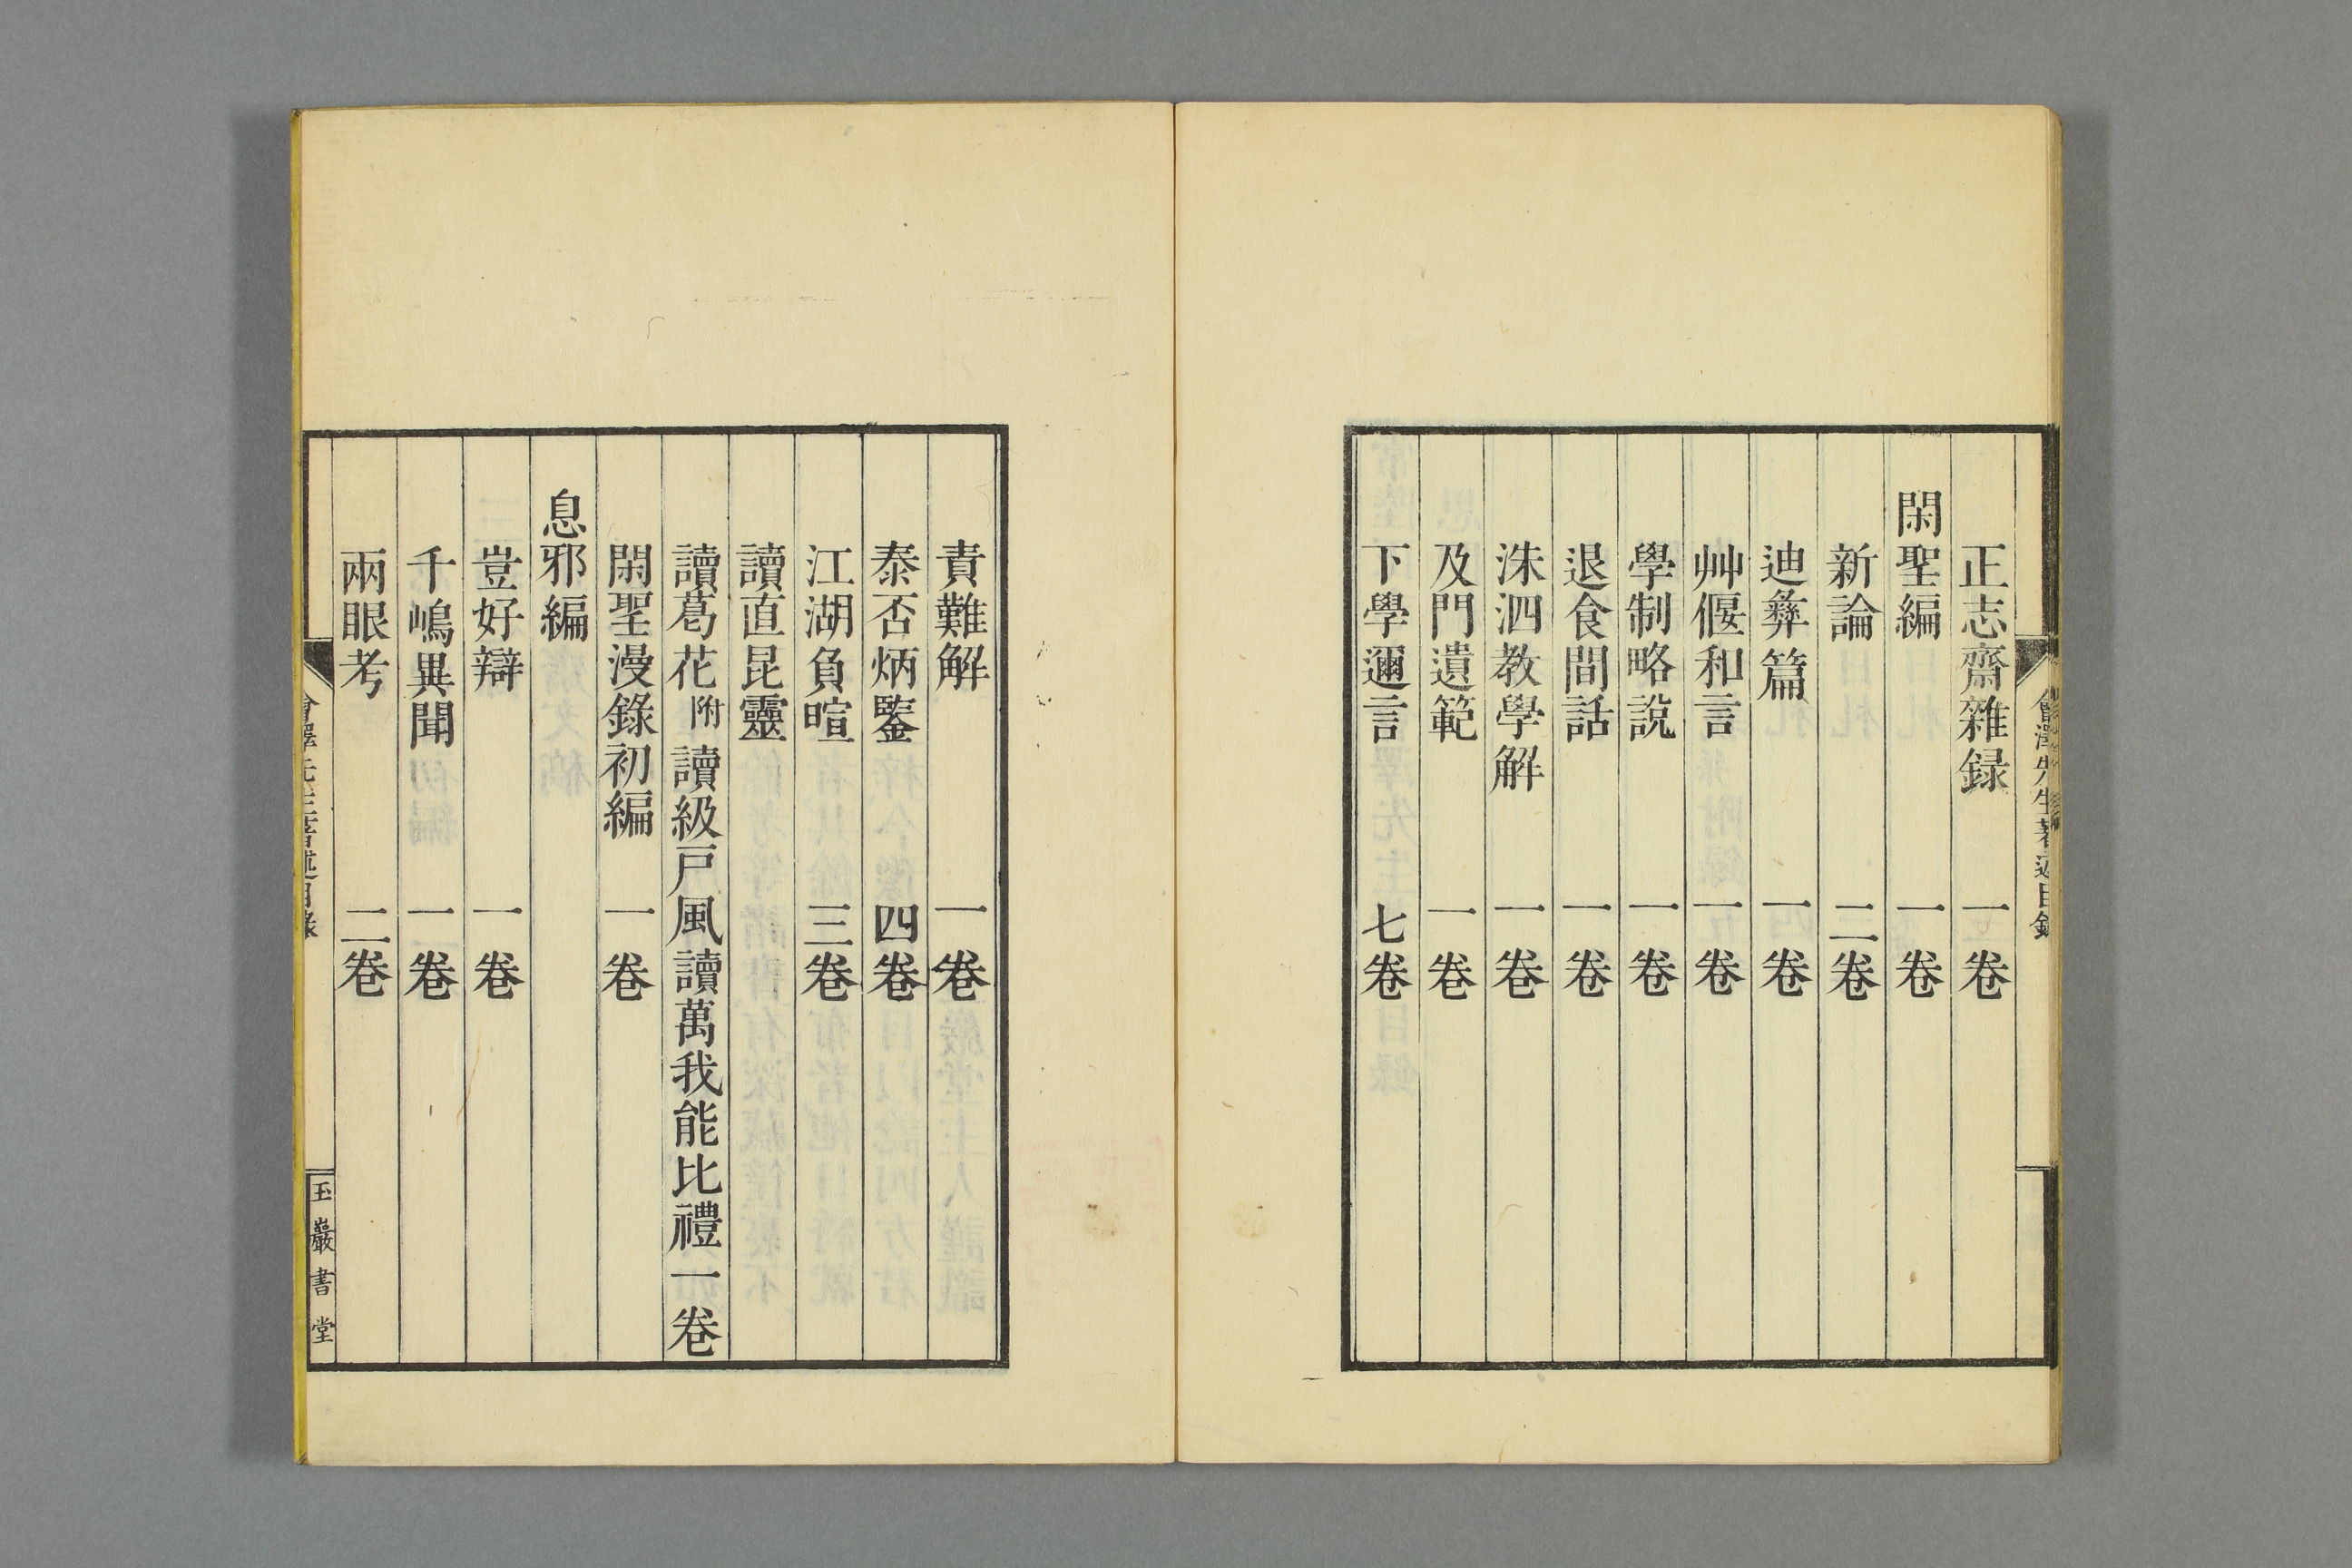 會澤先生著述目錄
正志齋雜録 一卷
閑聖編 一卷
新論 二卷
迪彝篇 一卷
艸偃和言 一卷
學制略説 一卷
退食間話 一卷
洙泗教學解 一卷
及門遺範 一卷
下學邇言 七卷
責難解 一卷
泰否炳鑒 四卷
江湖負暄 三卷
讀直昆靈
讀葛花 附 讀級戸風讀萬我能比禮一卷
閑聖漫錄初編 一卷
息邪編
豈好辯 一卷
千嶋異聞 一卷
兩眼考 二卷
會澤先生著述目錄
玉巖書堂